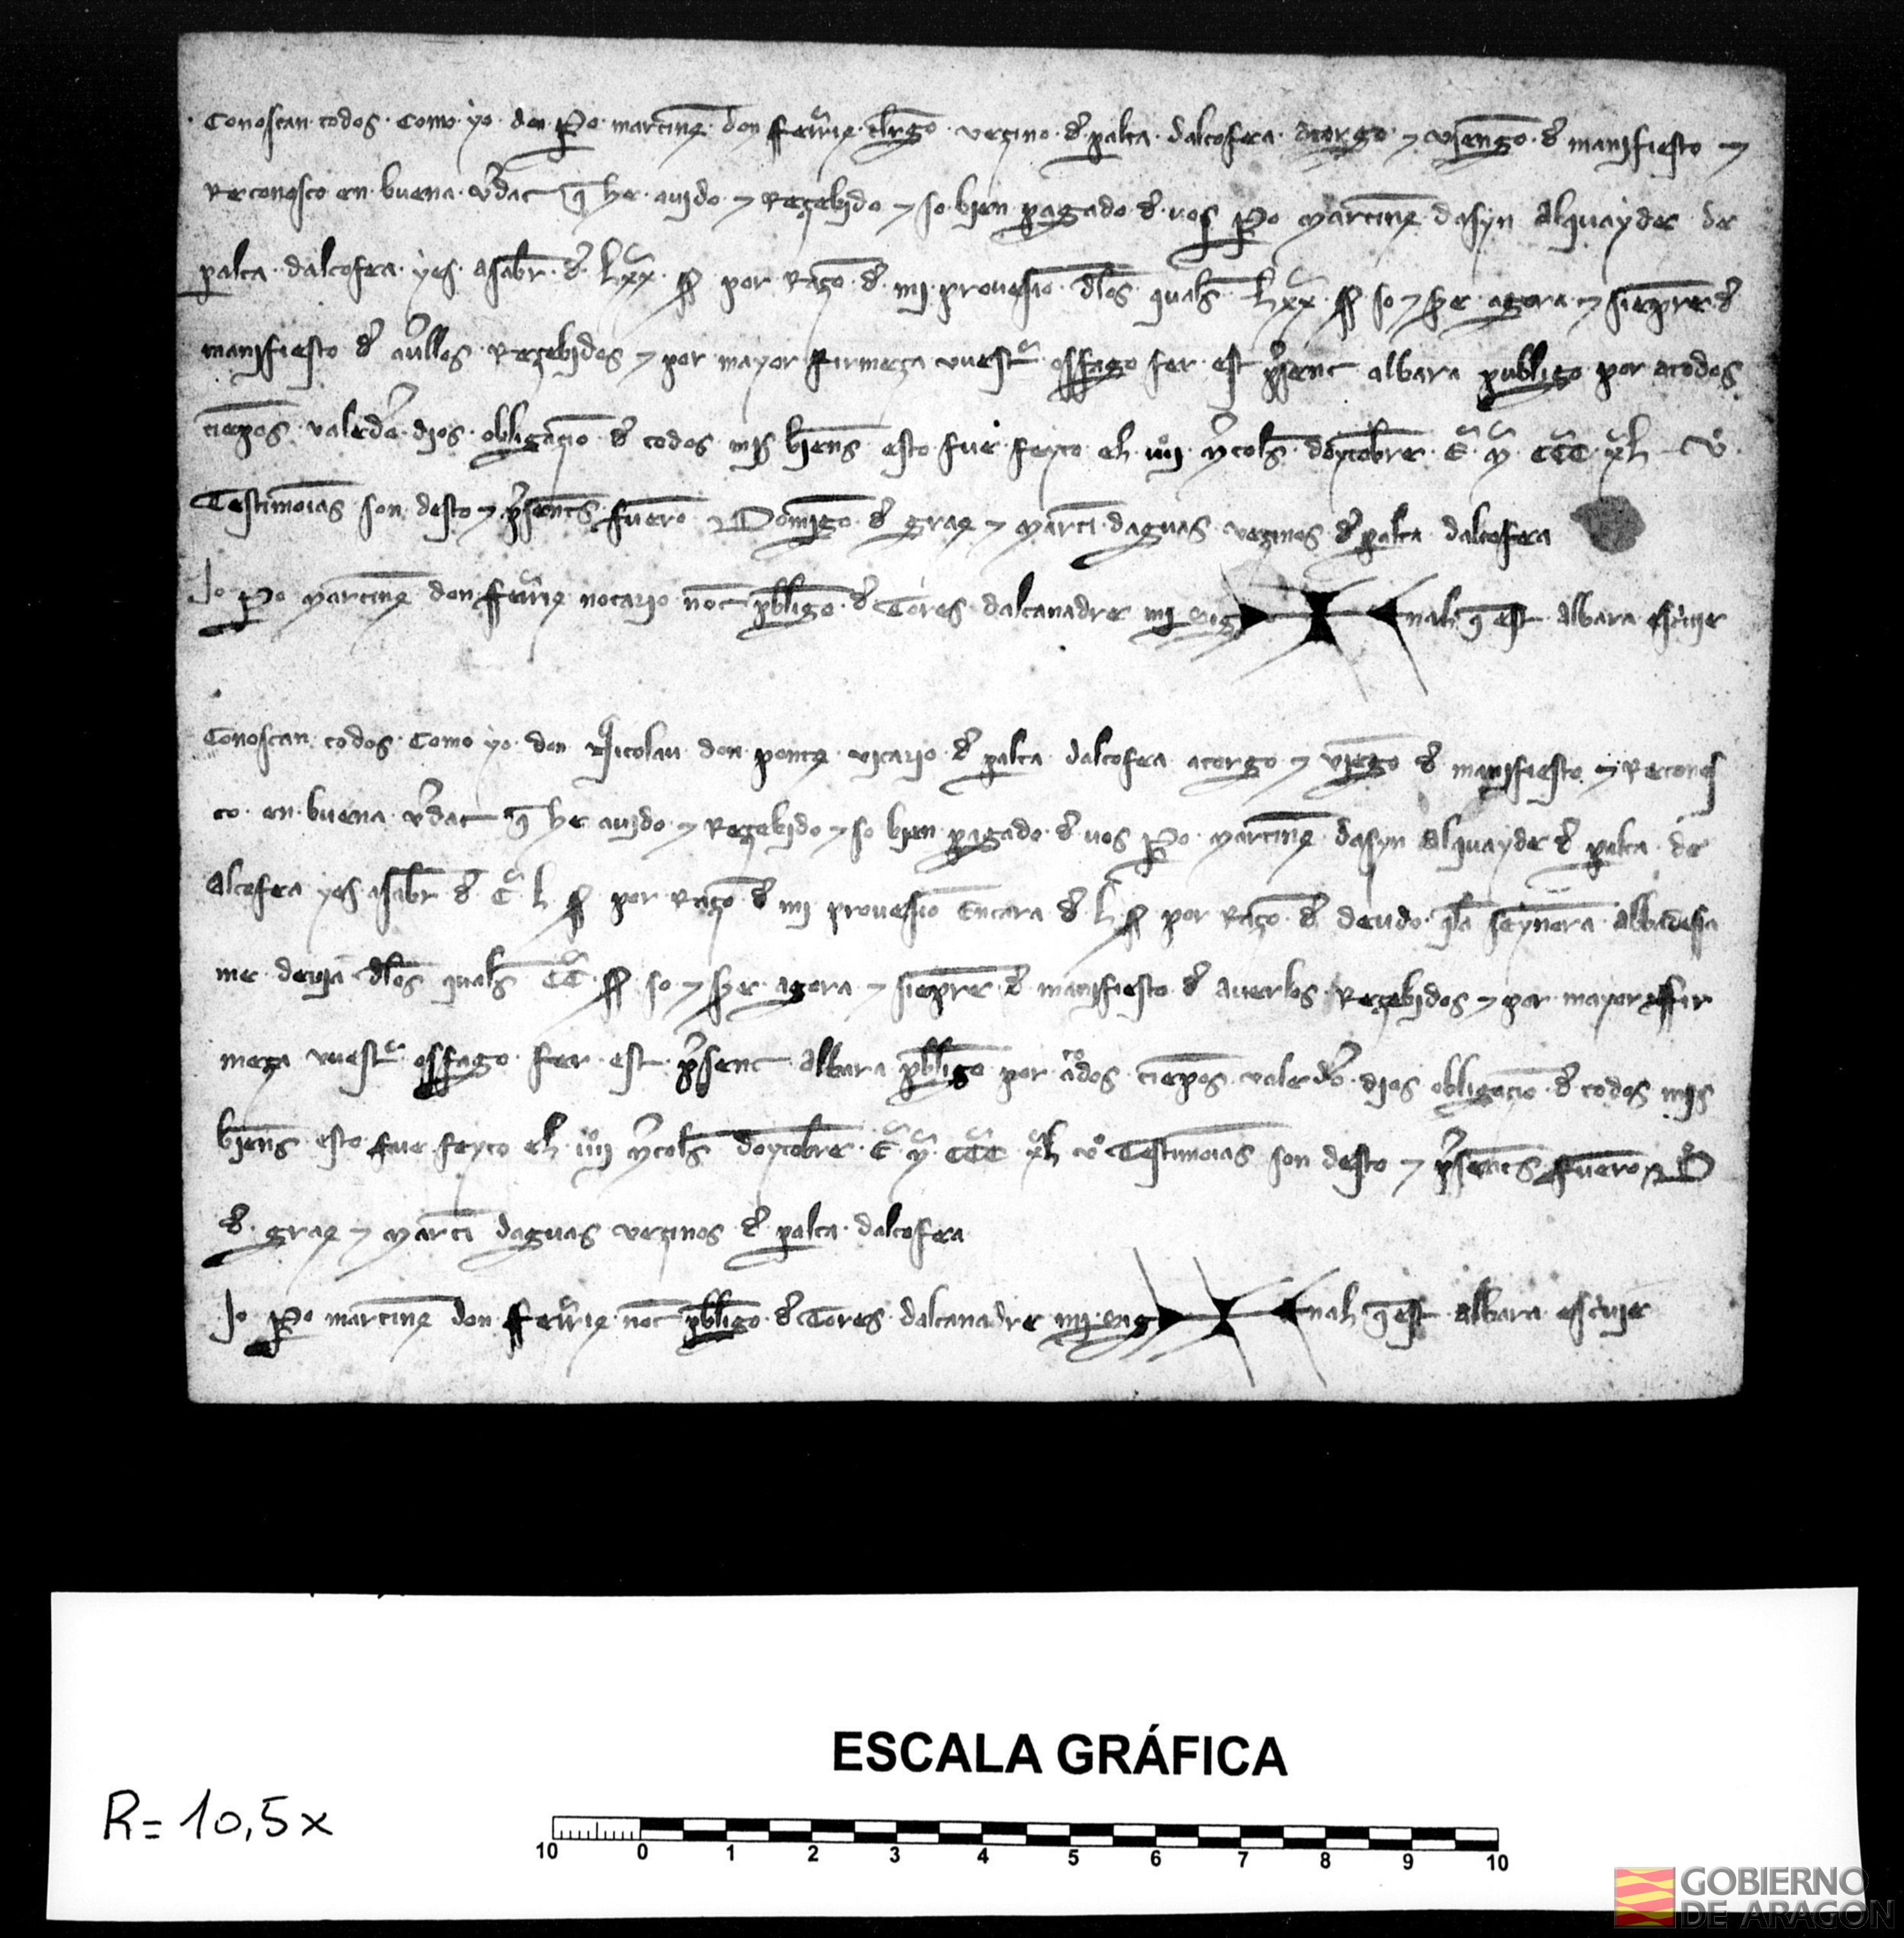 Conoscan todos como yo don Po martinez don fferriz clergo vezino d palta dalcofea atorgo y viengo d manifiesto y
Reconosco en buena vdat q he auido y Rezebido y so bien pagado d uos Po martinez dasyn Alquayde de
palta dalcofea yes asabr d Lxx ss por Razo d mi prouesio dlos quals Lxx ss so y he agora y siepre d
manifiesto d aullos Rezebidos y por mayor firmeza vuestra fer est psent albara publigo por atodos
tiepos valedo obligatio d todos mis biens esto fue feyto el iiii ycols doytobre E M CCC xl
Testimoias son desto y psents fuero Domigo d graz y marti daguas vezinos d palta dalcofea
Jo Po martinez don fferriz notario not pbligo d Tores dalcanadre mi sig nal q est albara escriuie
Conoscan todos Como yo don Nicolau don ponz vicario d palta dalcofea atorgo y viego d manifiesto y Reconos
co en buena vdat q he auido y Rezebido y so bien pagado d uos Po martinez dasyn Alquayde d palta de
Alcofea yes asabr d C L ss por Razo d mi prouesio Encara d L ss por Razo d deudo qla seynnora abbadessa
me deuia dlos quals CC ss so y he agora y siepre d manifiesto d auerlos Rezebidos y por mayor ffir
meza vuest fer est psent Albara pbligo por atodos tiepos valedo obligatio d todos mis
biens esto fue feyto el iiii ycols doytobre E M CCC xl Testimoias son desto y psents fuero Do
d graz y marti daguas vezinos d palta dalcofea
Jo Po martinez don fferriz not pbligo d Tores dalcanadre mi sig nal q est albara escriuie
ESCALA GRÁFICA
R= 10,5x
10 0 1 2 3 4 5 6 7 8 9 10
GOBIERNO
DE ARAGON